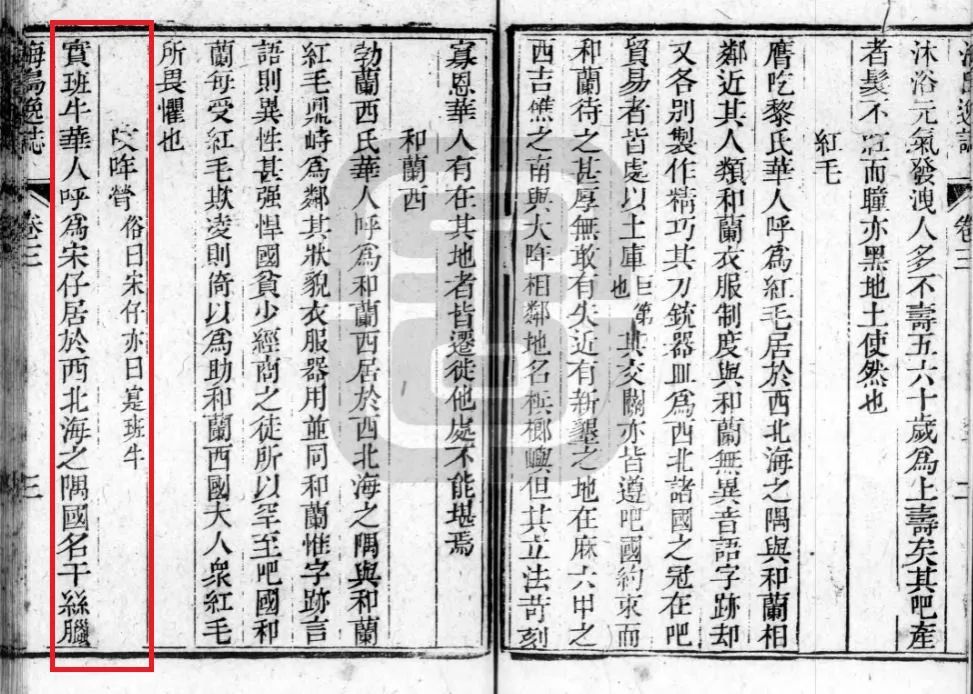 海島逸誌 卷三 二
沐浴元氣發洩人多不壽五六十歲爲上壽矣其吧產
者髮不紅而瞳亦黑地土使然也
紅毛
膺吃黎氏華人呼爲紅毛居於西北海之隅與和蘭相
鄰近其人類和蘭衣服制度與和蘭無異音語字跡却
又各別製作精巧其刀銃器皿爲西北諸國之冠在吧
貿易者皆處以土庫巨第也其交關亦皆遵吧國約束而
和蘭待之甚厚無敢有失近有新墾之地在麻六甲之
西吉憔之南與大哖相鄰地名檳榔嶼但其立法苛刻
寡恩華人有在其地者皆遷徙他處不能堪焉
和蘭西
勃蘭西氏華人呼爲和蘭西居於西北海之隅與和蘭
紅毛鼎峙爲鄰其狀貌衣服器用並同和蘭惟字跡言
語則異性甚强悍國貧少經商之徒所以罕至吧國和
蘭每受紅毛欺凌則倚以爲助和蘭西國大人衆紅毛
所畏懼也
哖 俗曰宋仔亦曰寔班牛
實班牛華人呼爲宋仔居於西北海之隅國名干絲臘
海島逸誌 卷三 三